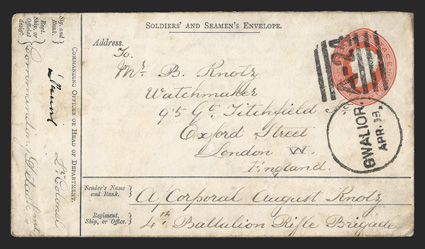 SOLDIERS' AND SEAMEN'S ENVELOPE.
Address.
To.
Mr. B. Knotz
Watchmaker
95 Gt. Titchfield St.
Oxford Street
London W.
England.
A-24
GWALIOR.
APR. 13.
Sender's Name
and Rank.
A/Corporal August Knotz
Regiment,
Ship, or Office.
4th Battalion Rifle Brigade
COMMANDING OFFICER OR HEAD OF DEPARTMENT.
Sig. and
Rank.
Lt Colonel
Regt.
Ship, or
Official
design.
Commanding Detachment